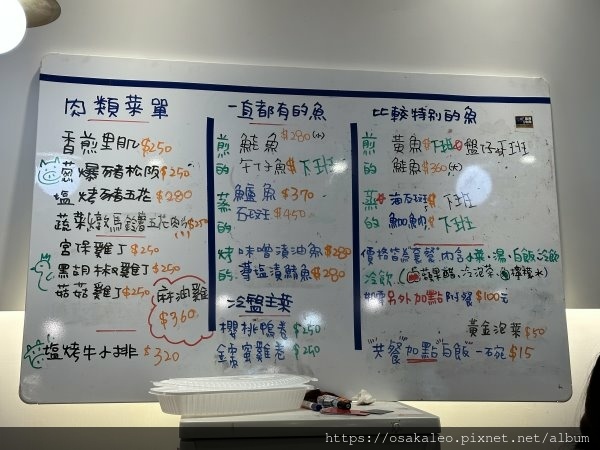 肉類菜單
香煎里肌 $250
蔥爆豬松阪 $250
塩烤豬五花 $280
蔬菜烤馬鈴薯五花肉 $250
宮保雞丁 $250
黑胡椒雞丁 $250
菇菇雞丁 $250
麻油雞
$360
塩烤牛小排 $320
一直都有的魚
煎的
鮭魚 $280(小)
午仔魚 $下班
蒸的
鱸魚 $370
石斑 $450
烤的
味噌漬油魚 $280
薄塩漬鯖魚 $280
冷盤主菜
櫻桃鴨卷 $250
雞卷 $250
比較特別的魚
煎的
黃魚 $下班 盤仔 下班
鮭魚 $360(大)
蒸的
海石斑 下班
加納魚 下班
價格皆為套餐 內含小菜、湯、白飯、冷飲
冷飲(蘋果醋、冷泡茶、檸檬水)
如需另外加點附餐 $100元
黃金泡菜 $50
"共餐"加點"白飯"一碗 $15
https://osakaleo.pixnet.net/album